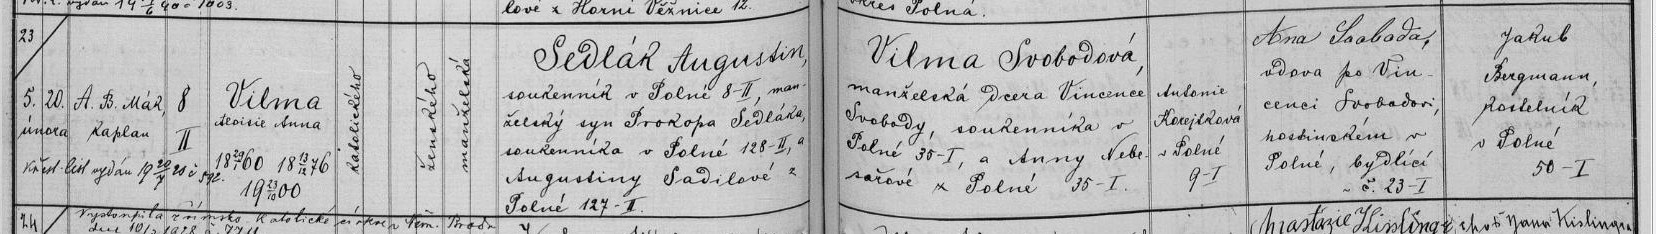 lové z Horní Věžnice 12.
okres Polná.
23
5. 20.
února
A. B. Mák,
kaplan
8
II
Vilma
Aloisie Anna
katolického
ženského
manželská
Sedlák Augustin,
soukenník v Polné 8-II, man-
želský syn Prokopa Sedláka,
soukenníka v Polné 128-II, a
Augustiny Sadilové z
Polné 127-II.
Vilma Svobodová,
manželská dcera Vincence
Svobody, soukenníka v
Polné 35-I, a Anny Nebe-
sařové z Polné 35-I.
Antonie
Korejtková
v Polné
9-I
Ana Svoboda,
vdova po Vin-
cenci Svobodovi,
hostinském v
Polné, bydlící
v č. 23-I
Jakub
Bergmann,
kostelník
v Polné
50-I
Křest. list vydán 19 20/7 20 č 592.
18 29/7 60 18 13/12 76
19 23/10 00
24
Vystoupila z římsko-katolické církve v Něm. Brodě
dne 10/2 1928 č. 7711
Anastázie Kisling
choť Jana Kislingra